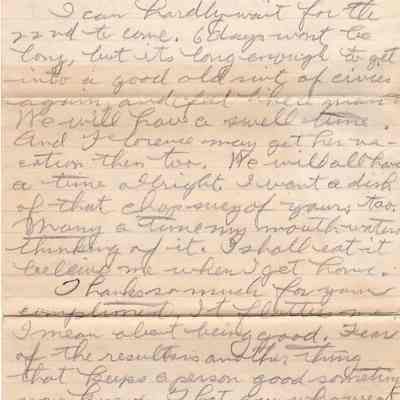 I can hardly wait for the
22nd to come. 6 days wont be
long, but its long enough to get
into a good old suit of civies
again, and feel like a man
We will have a swell time.
And Florence may get her va-
cation then too. We will all have
a time alright. I want a dish
of that chop suey of yours, too.
Many a time my mouth waters
thinking of it. I shall eat it
believe me when I get home.
Thanks so much for your
compliment. It flatters me.
I mean about being good. Fear
of the results is another thing
that keeps a person good